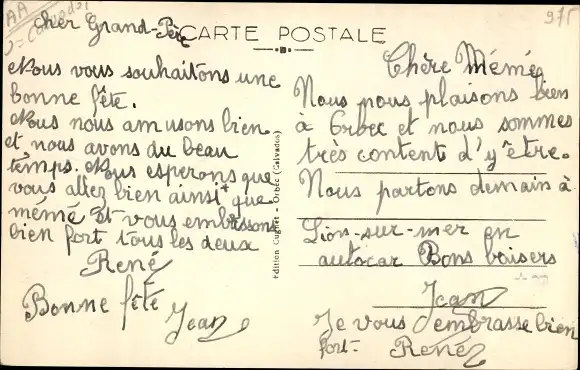 AA
975
CARTE POSTALE
cher Grand-Père
Nous vous souhaitons une
bonne fête.
Nous nous amusons bien
et nous avons du beau
temps. Nous esperons que
vous allez bien ainsi que
mémé et vous embrassons
bien fort tous les deux
René
Bonne fête
Jean
Edition Cugnet - Orbec (Calvados)
Chère Mémé
Nous nous plaisons bien
à Orbec et nous sommes
très content d'y être.
Nous partons demain à
Lion-sur-mer en
autocar Bons baisers
Jean
Je vous embrasse bien
fort- René